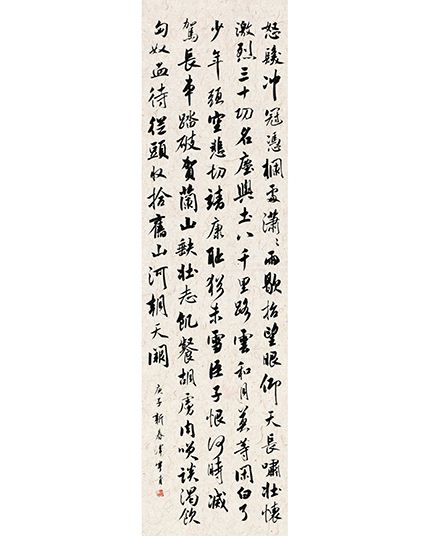 怒髮冲冠憑欄處瀟〻雨歇抬望眼仰天長嘯壯懷
激烈三十功名塵與土八千里路雲和月莫等閑白了
少年頭空悲切靖康耻猶未雪臣子恨何時滅
駕長車踏破賀蘭山缺壯志飢餐胡虜肉笑談渴飲
匈奴血待從頭收拾舊山河朝天闕
庚子新春